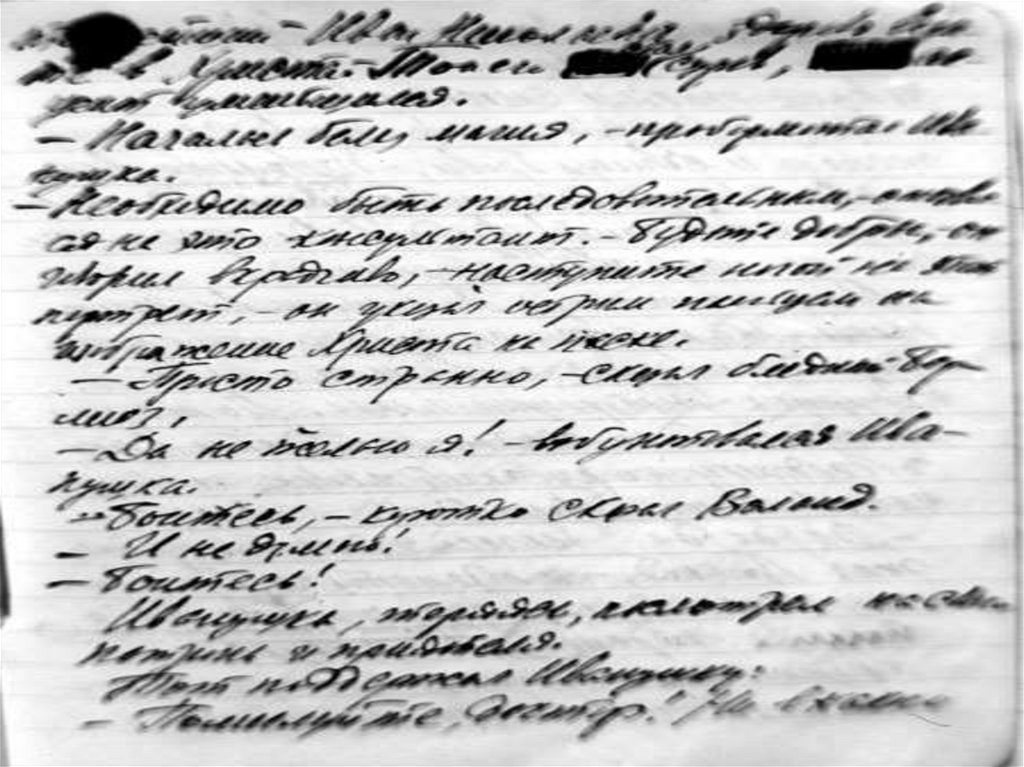 – Иван Николаевич, здорово
в Христа. – Тогда
– Начальные болезни магия, – пробормотал Ива-
нушка.
– Необходимо быть последовательным, – отозвал-
ся на это консультант. – Будьте добры, – он
говорил вкрадчиво, – наступите ногой на этот
портрет, – он указал острым пальцем на
изображение Христа на песке.
– Просто странно, – сказал бледный Бер-
лиоз.
– Да не желаю я! – взбунтовался Ива-
нушка.
– Боитесь, – коротко сказал Воланд.
– И не думаю!
– Боитесь!
Иванушка, теряясь, посмотрел на свои
патрона и приятеля.
Тот поддержал Иванушку:
– Помилуйте, доктор! Ни в каки